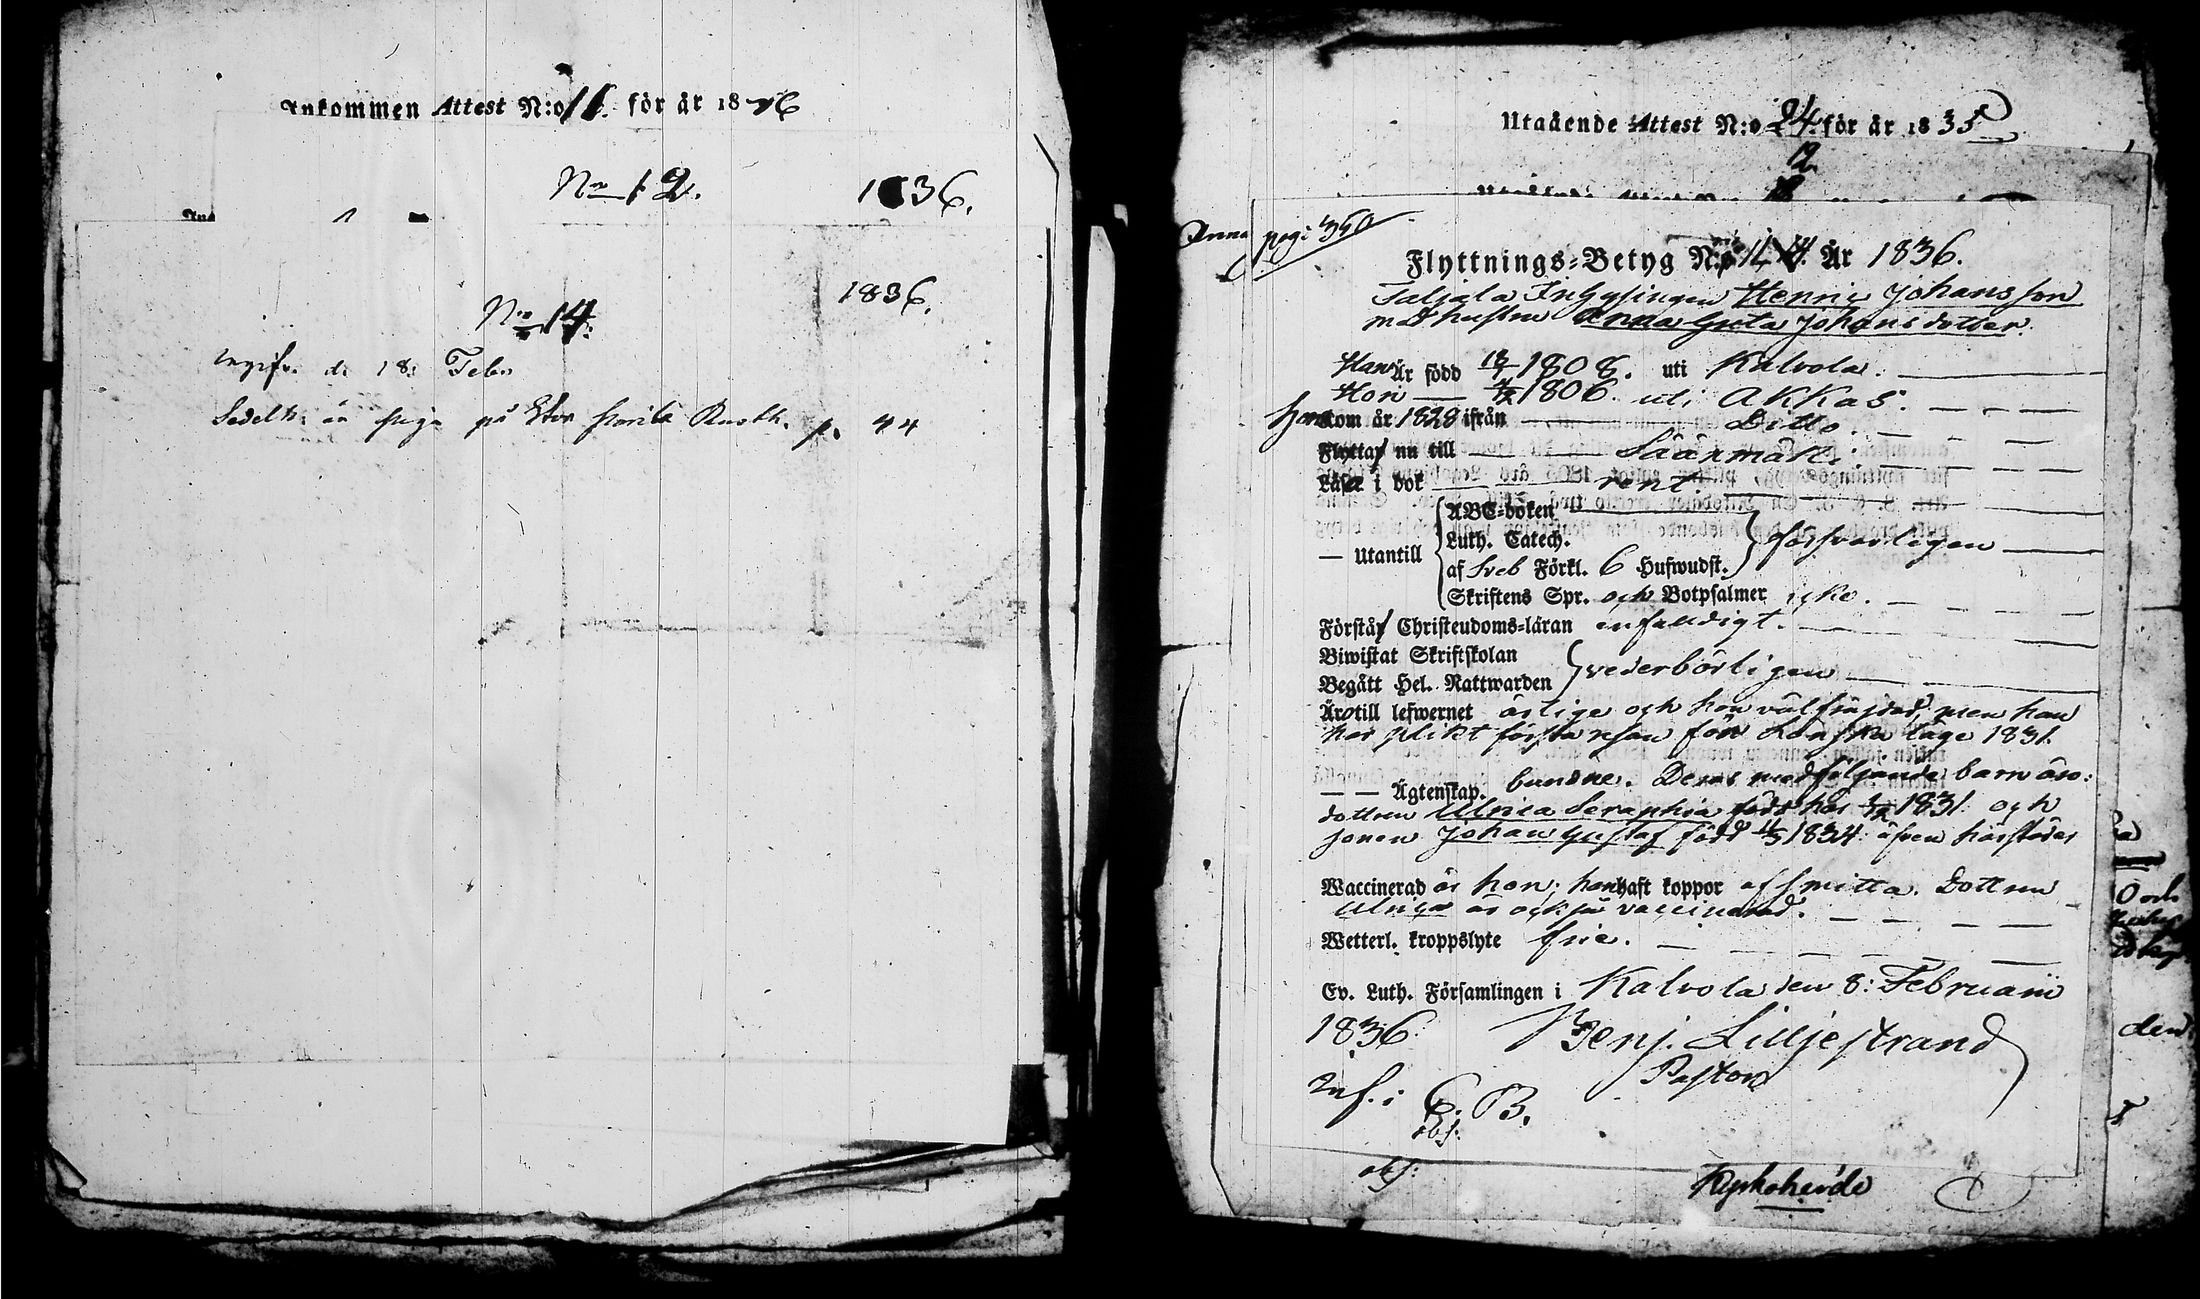 Ankommen Attest N:o 11. för år 1836
N:o 12. 1836.
N:o 14. 1836.
d. 18 Febr
på Stor p. 44
Utgående Attest N:o 24. för år 1835
12
18
pag: 350
Flyttnings-Betyg N:o 11 År 1836.
Taljala Inhysingen Henric Johansson
med hustru Anna Greta Johansdotter.
Han Är född 1808. uti Kalvola.
Hon — 1806. uti Akkas.
Hon kom år 1828 ifrån Ditto.
Flytta nu till Säärmäki
Läser i bok rent
— Utantill
ABC-boken
Luth. Catech.
af Sveb Förkl. 6 Hufwudst.
försvarligen
Skriftens Spr. och Botpsalmer icke.
Förstår Christendoms-läran enfaldigt.
Biwistat Skriftskolan
Begått Hel. Nattwarden
vederbörligen
Äro till lefwernet ärlige och hon välfräjdad, men han
har plikt första resan för Lönska läge 1831.
— — Ägtenskap. bundne. Deras medföljande barn äro:
dottren Ulrica Seraphia född här 1831. och
sonen Johan Gustaf född 1834. äfven härstädes
Waccinerad är hon; han haft koppor af smitta. Dottren
Ulrica är också vaccinerad.
Wetterl. kroppslyte frie.
Ev. Luth. Församlingen i Kalvola den 8: Februarii
1836. Benj. Lilljestrand
Pastor
inf. i C. B.
obs:
obs:
Kyrkoherde
och
den